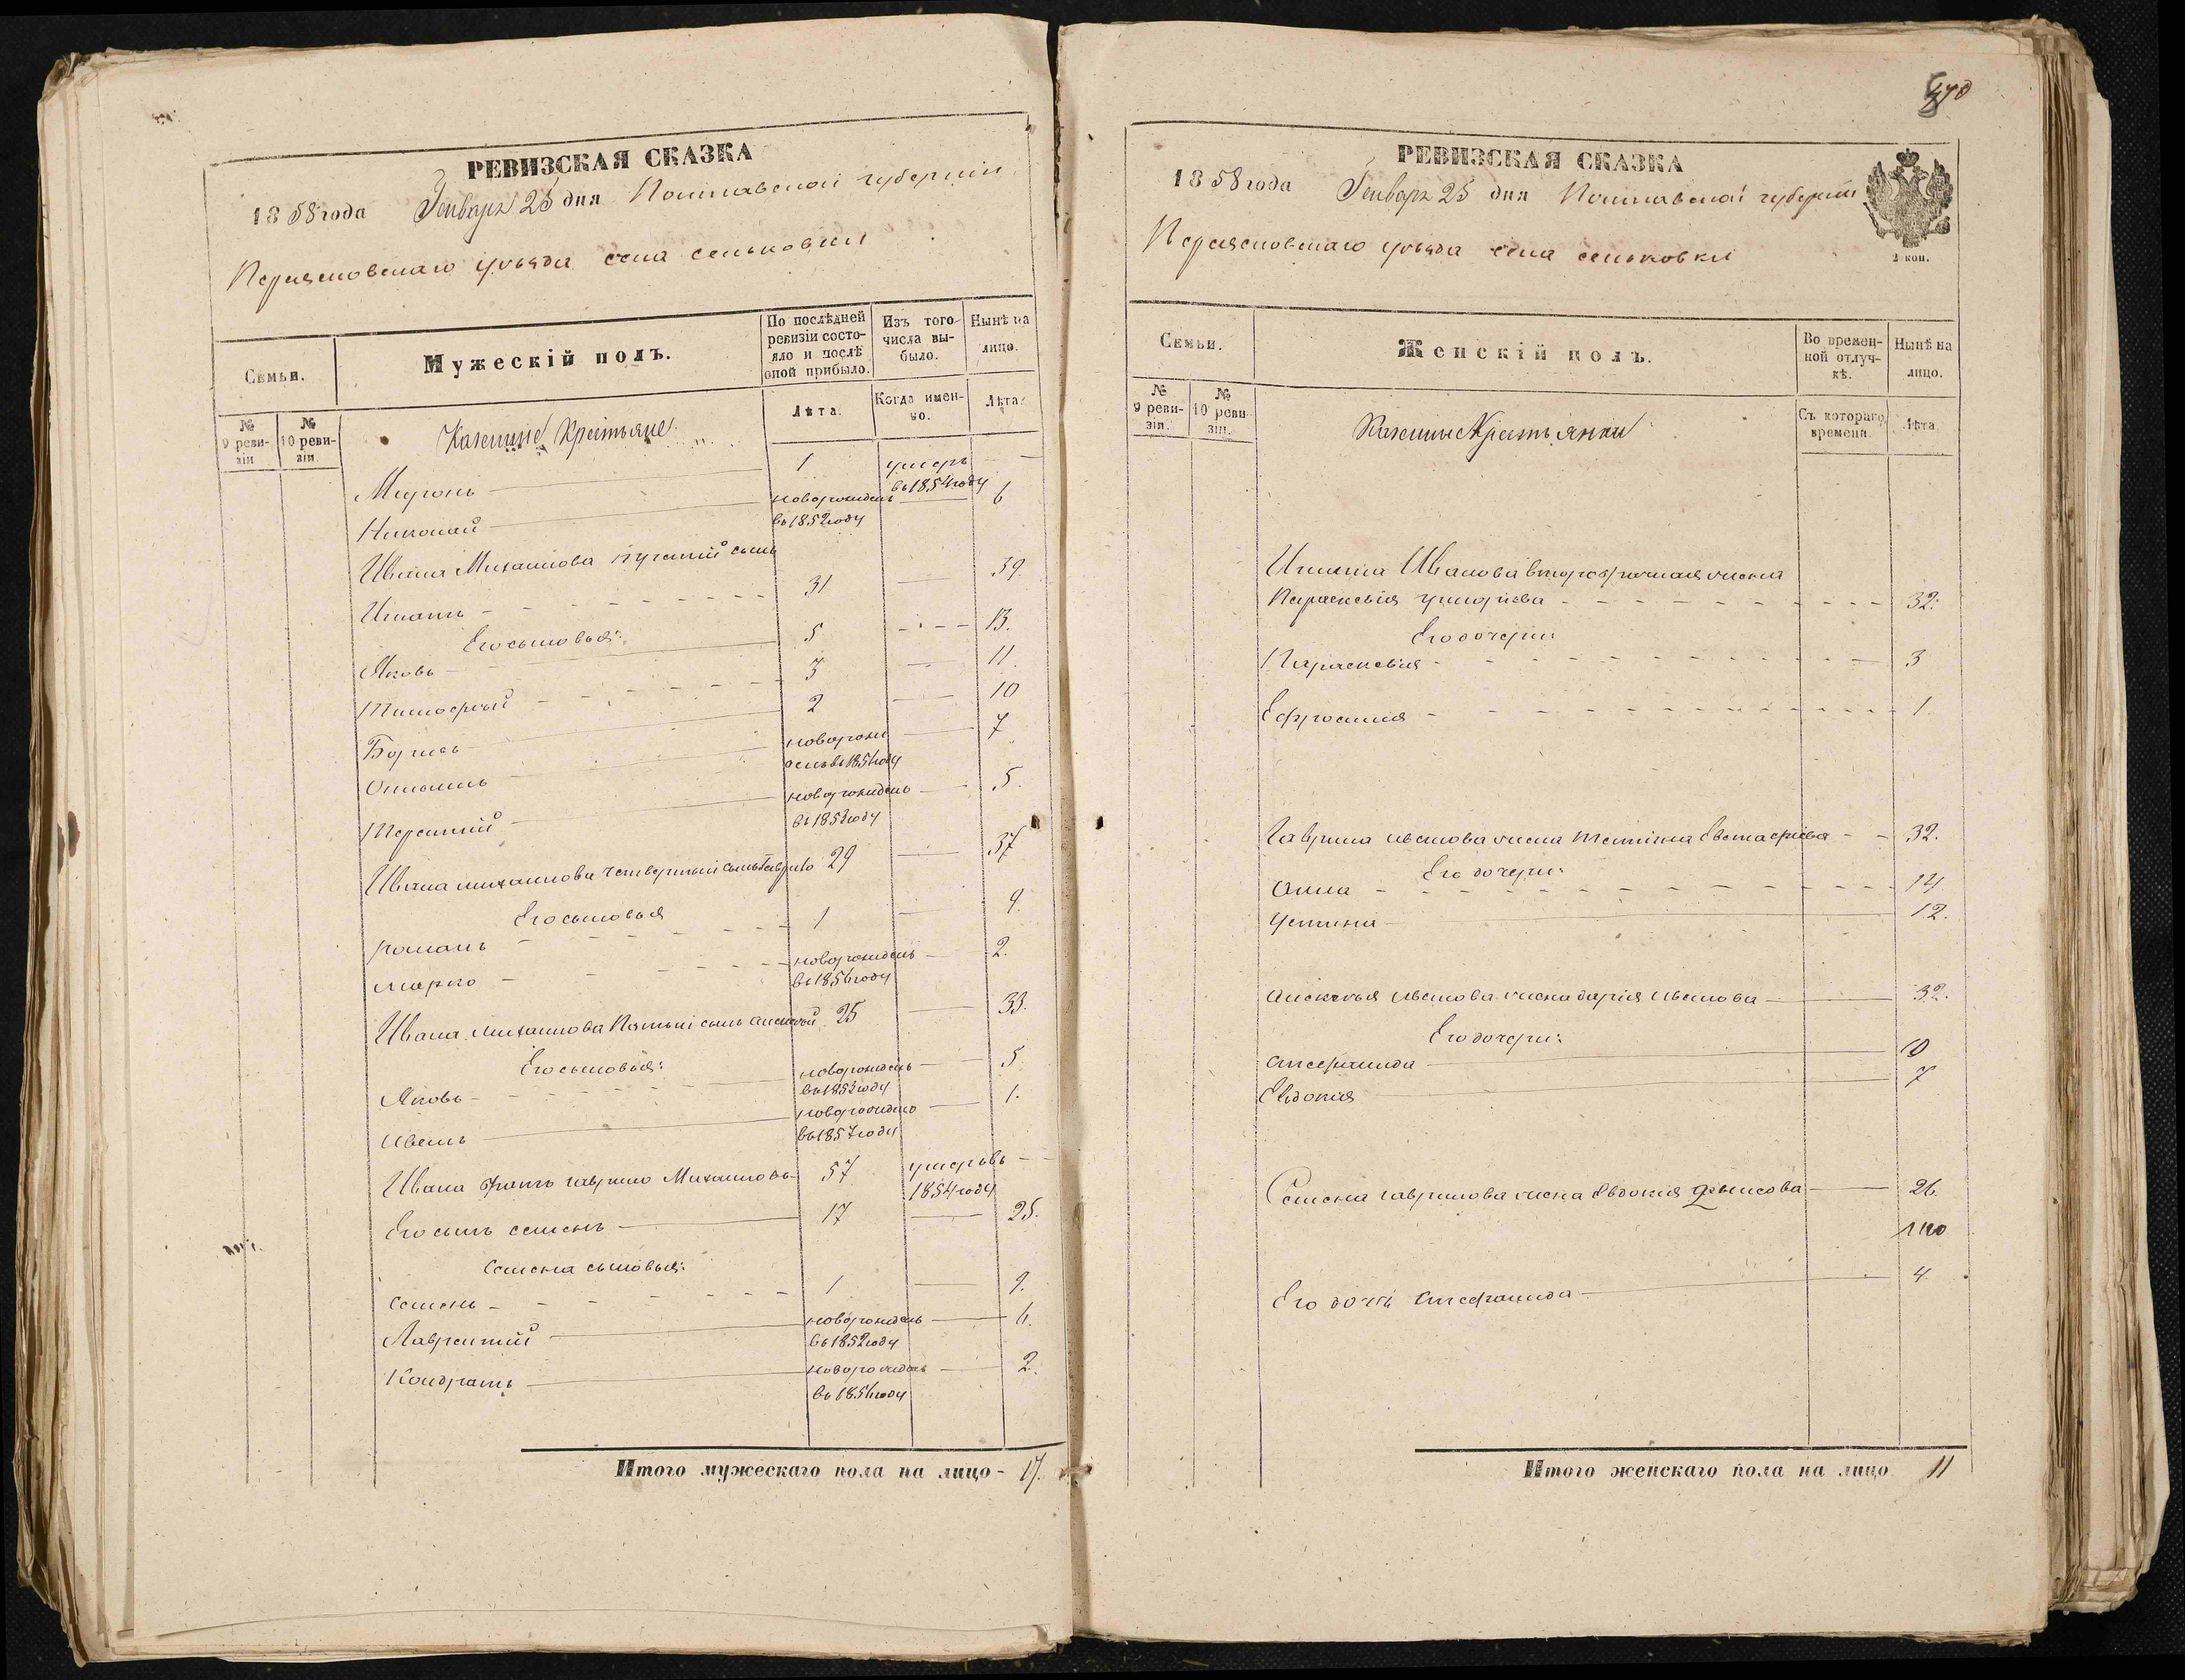 РЕВИЗСКАЯ СКАЗКА
1858 года Генваря 25 дня Полтавской губернии
Переясловскаго уѣзда села сеньковки
Семьи.
Мужескій полъ.
По послѣдней ревизіи состояло и послѣ оной прибыло.
Изъ того числа выбыло.
Нынѣ на лицо.
№ 9 ревизіи
№ 10 ревизіи.
Казенные Крестьяне
Лѣта.
Когда именно.
Лѣта.
Миронъ 1 умеръ въ 1854 году
Николай новорожденъ въ 1852 году 6
Ивана Михайлова сынъ
Игнатъ 31 39.
Его сыновья:
Яковъ 5 13.
Тимофей 3 11.
Борисъ 2 10
новорожденъ въ 1851 году 7
Терентій новорожденъ въ 1853 году 5.
Ивана михайлова четвертый сынъ Гаврило 29 37
Его сыновья
Романъ 1 9.
Марко новорожденъ въ 1856 году 2.
Ивана михайлова Пятый сынъ Алексей 25 33.
Его сыновья:
Яковъ новорожденъ въ 1853 году 5
Иванъ новорожденъ въ 1857 году 1.
Ивана братъ гаврило Михайловъ 57 умеръ въ 1854 году
Его сынъ семенъ 17 25.
Семена сыновья:
Семенъ 1 9.
Лаврентій новорожденъ въ 1852 году 6.
Кондратъ новорожденъ въ 1856 году 2.
Итого мужескаго пола на лицо - 17.
740
РЕВИЗСКАЯ СКАЗКА
1858 года Генваря 25 дня Полтавской губернии
2 коп.
Переясловскаго уѣзда села сеньковки
Семьи.
Женскій полъ.
Во временной отлучкѣ.
Нынѣ на лицо.
№ 9 ревизіи.
№ 10 ревизіи.
Казенные Крестьянки
Съ котораго времени.
Лѣта
Игната Иванова второбрачная жена
Параскевія григорьева 32.
Его дочери:
Параскевія 3
Ефросинія 1.
Гаврила иванова жена Татіяна Евстафіева 32.
Его дочери:
Анна 14
Устина 12.
Алексея иванова жена дарія иванова 32.
Его дочери:
Степанида 10
Евдокія 7
Семена гаврилова жена Евдокія денисова 26.
Его дочь Степанида 4
Итого женскаго пола на лицо 11